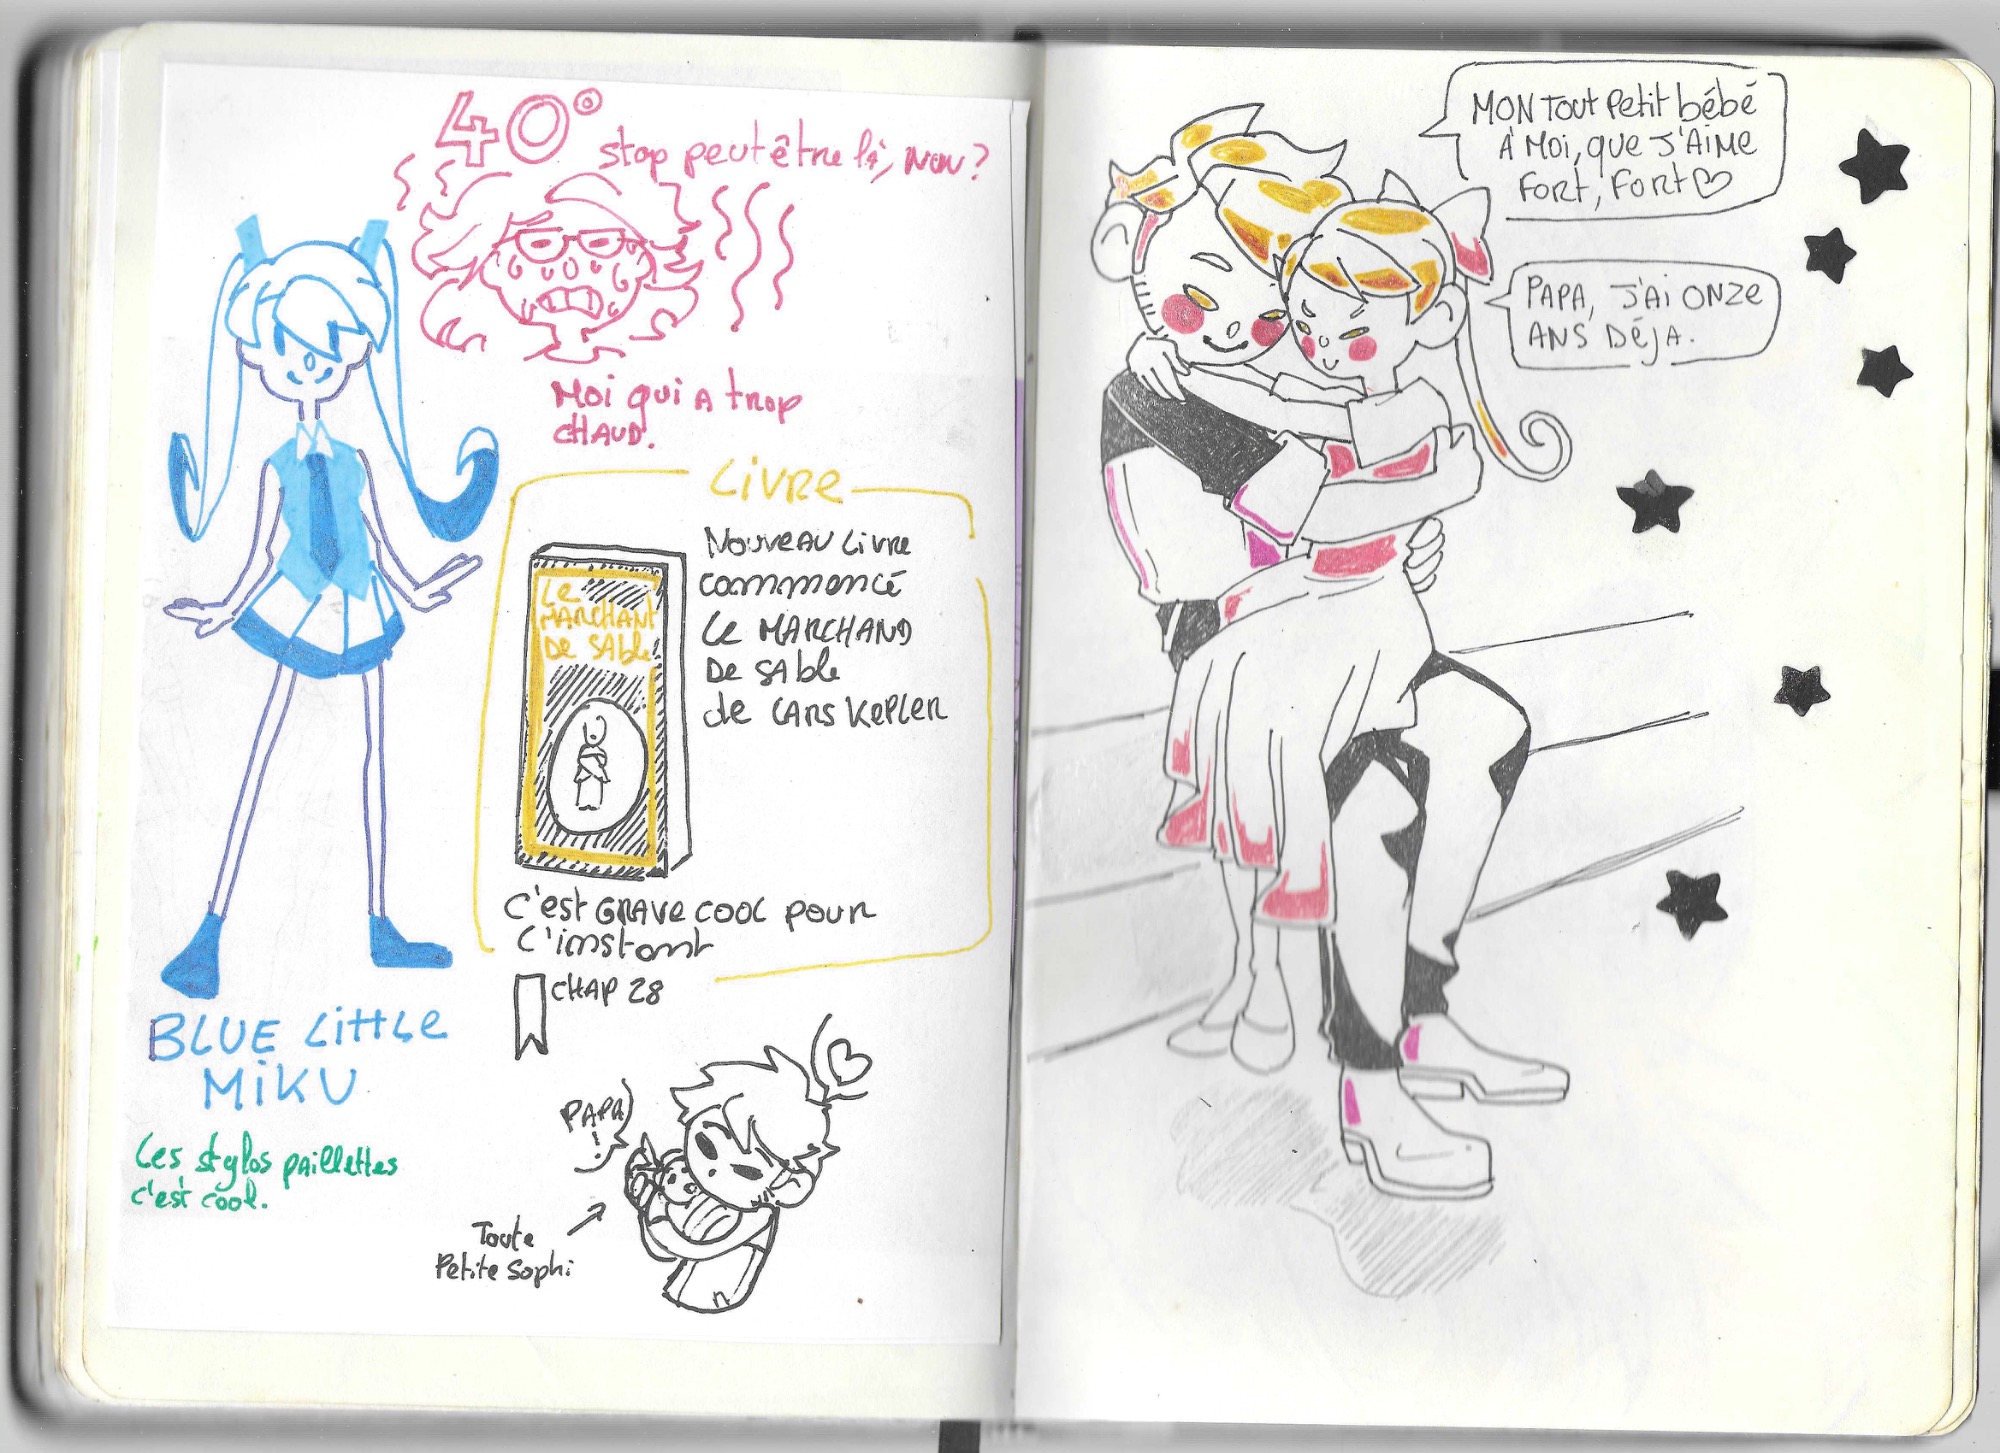 40°
stop peut être là, non?
Moi qui a trop
chaud.
Livre
Le
Marchant
de sable
Nouveau livre
commencé
Le Marchand
de sable
de Lars Kepler
C'est grave cool pour
l'instant
Chap 28
Blue Little
Miku
Les stylos paillettes
c'est cool.
Papa
!
Toute
Petite Sophi
Mon tout petit bébé
à moi, que j'aime
fort, fort
Papa, j'ai onze
ans déja.